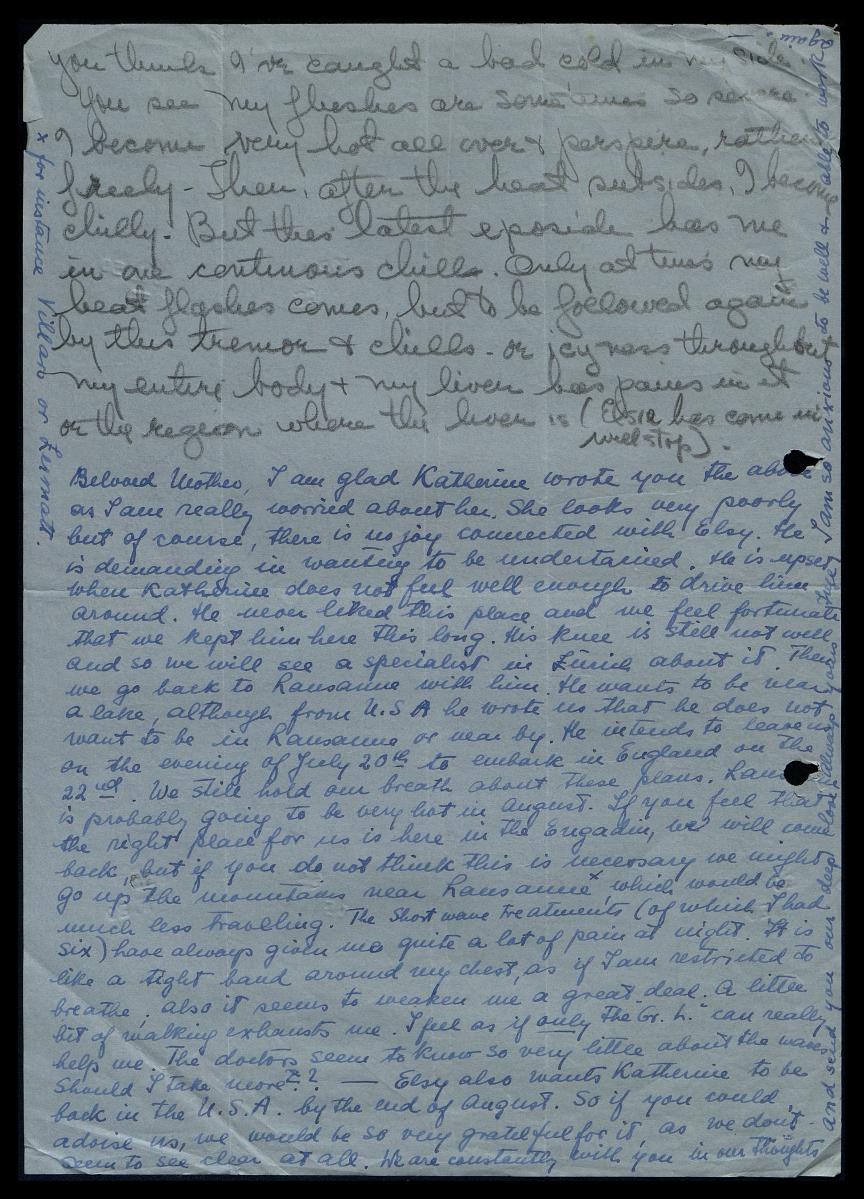 you think I've caught a bad cold in my side.
You see my flushes are sometimes so severe
I become very hot all over & perspire, rather
freely - Then, after the heat subsides, I become
chilly. But this latest eposide has me
in one continuous chills. Only at times my
heat flashes comes, but to be followed again
by this tremor & chills - or icyness throughout
my entire body & my liver has pains in it
or the region where the liver is (Elsie has come in
will stop).
Beloved Mother, I am glad Katherine wrote you the above
as I am really worried about her. She looks very poorly
but of course, there is no joy connected with Elsy. He
is demanding in wanting to be undertained. He is upset
when Katherine does not feel well enough to drive him
around. He never liked this place and we feel fortunate
that we kept him here this long. His knee is still not well
and so we will see a specialist in Zürich about it. Then
we go back to Lausanne with him. He wants to be near
a lake, although from U.S.A he wrote us that he does not
want to be in Lausanne or near by. He intends to leave us
on the evening of July 20th to embark in England on the
22nd. We still hold our breath about these plans. Laus
is probably going to be very hot in August. If you feel that
the right place for us is here in the Engadin, we will come
back, but if you do not think this is necessary we might
go up the mountains near Lausanne x, which would be
much less travelling. The short wave treatments (of which I had
six) have always given me quite a lot of pain at night. It is
like a tight band around my chest, as if I am restricted to
breathe. Also it seems to weaken me a great deal. A little
bit of walking exhausts me. I feel as if only the "Gr. L." can really
help me. The doctors seem to know so very little about the waves.
Should I take more?? — Elsy also wants Katherine to be
back in the U.S.A. by the end of August. So if you could
advise us, we would be so very grateful for it, as we don't
seem to see clear at all. We are constantly with you in our thoughts
and send you our deep love. Always yours
I am so anxious to be well & able to work
again! —
x for instance Villars or Zermatt.